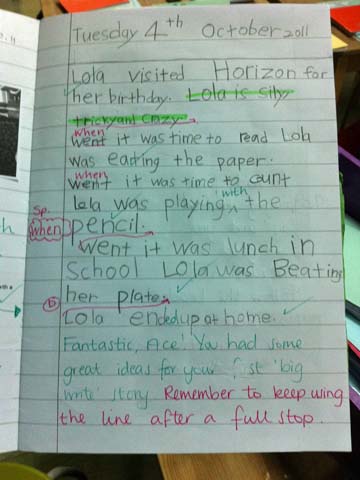 Tuesday 4th October 2011
Lola visited Horizon for
her birthday. Lola is sily
trickyand crazy.
when
went it was time to read Lola
was eating the paper.
when
went it was time to count
with
Lola was playing ^ the
Sp.
when pencil.
went it was lunch in
School Lola was Beating
her plate.
Lola ended up at home.
Fantastic, Ace! You had some
great ideas for your first 'big
write' story. Remember to keep using
the line after a full stop.